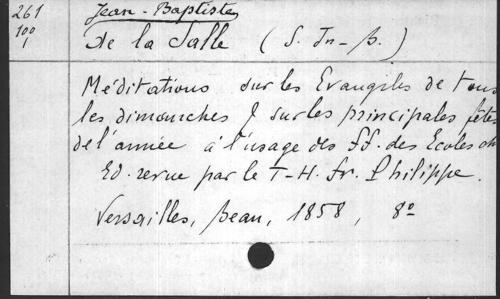 261
100
1
Jean-Baptiste
De la Salle (S. Jn-B.)
Méditations sur les Evangiles de tous
les dimanches & sur les principales fêtes
de l'année à l'usage des FF. des Ecoles ch
Ed. revue par le T-H. fr. Philippe.
Versailles, Beau, 1858, 8º